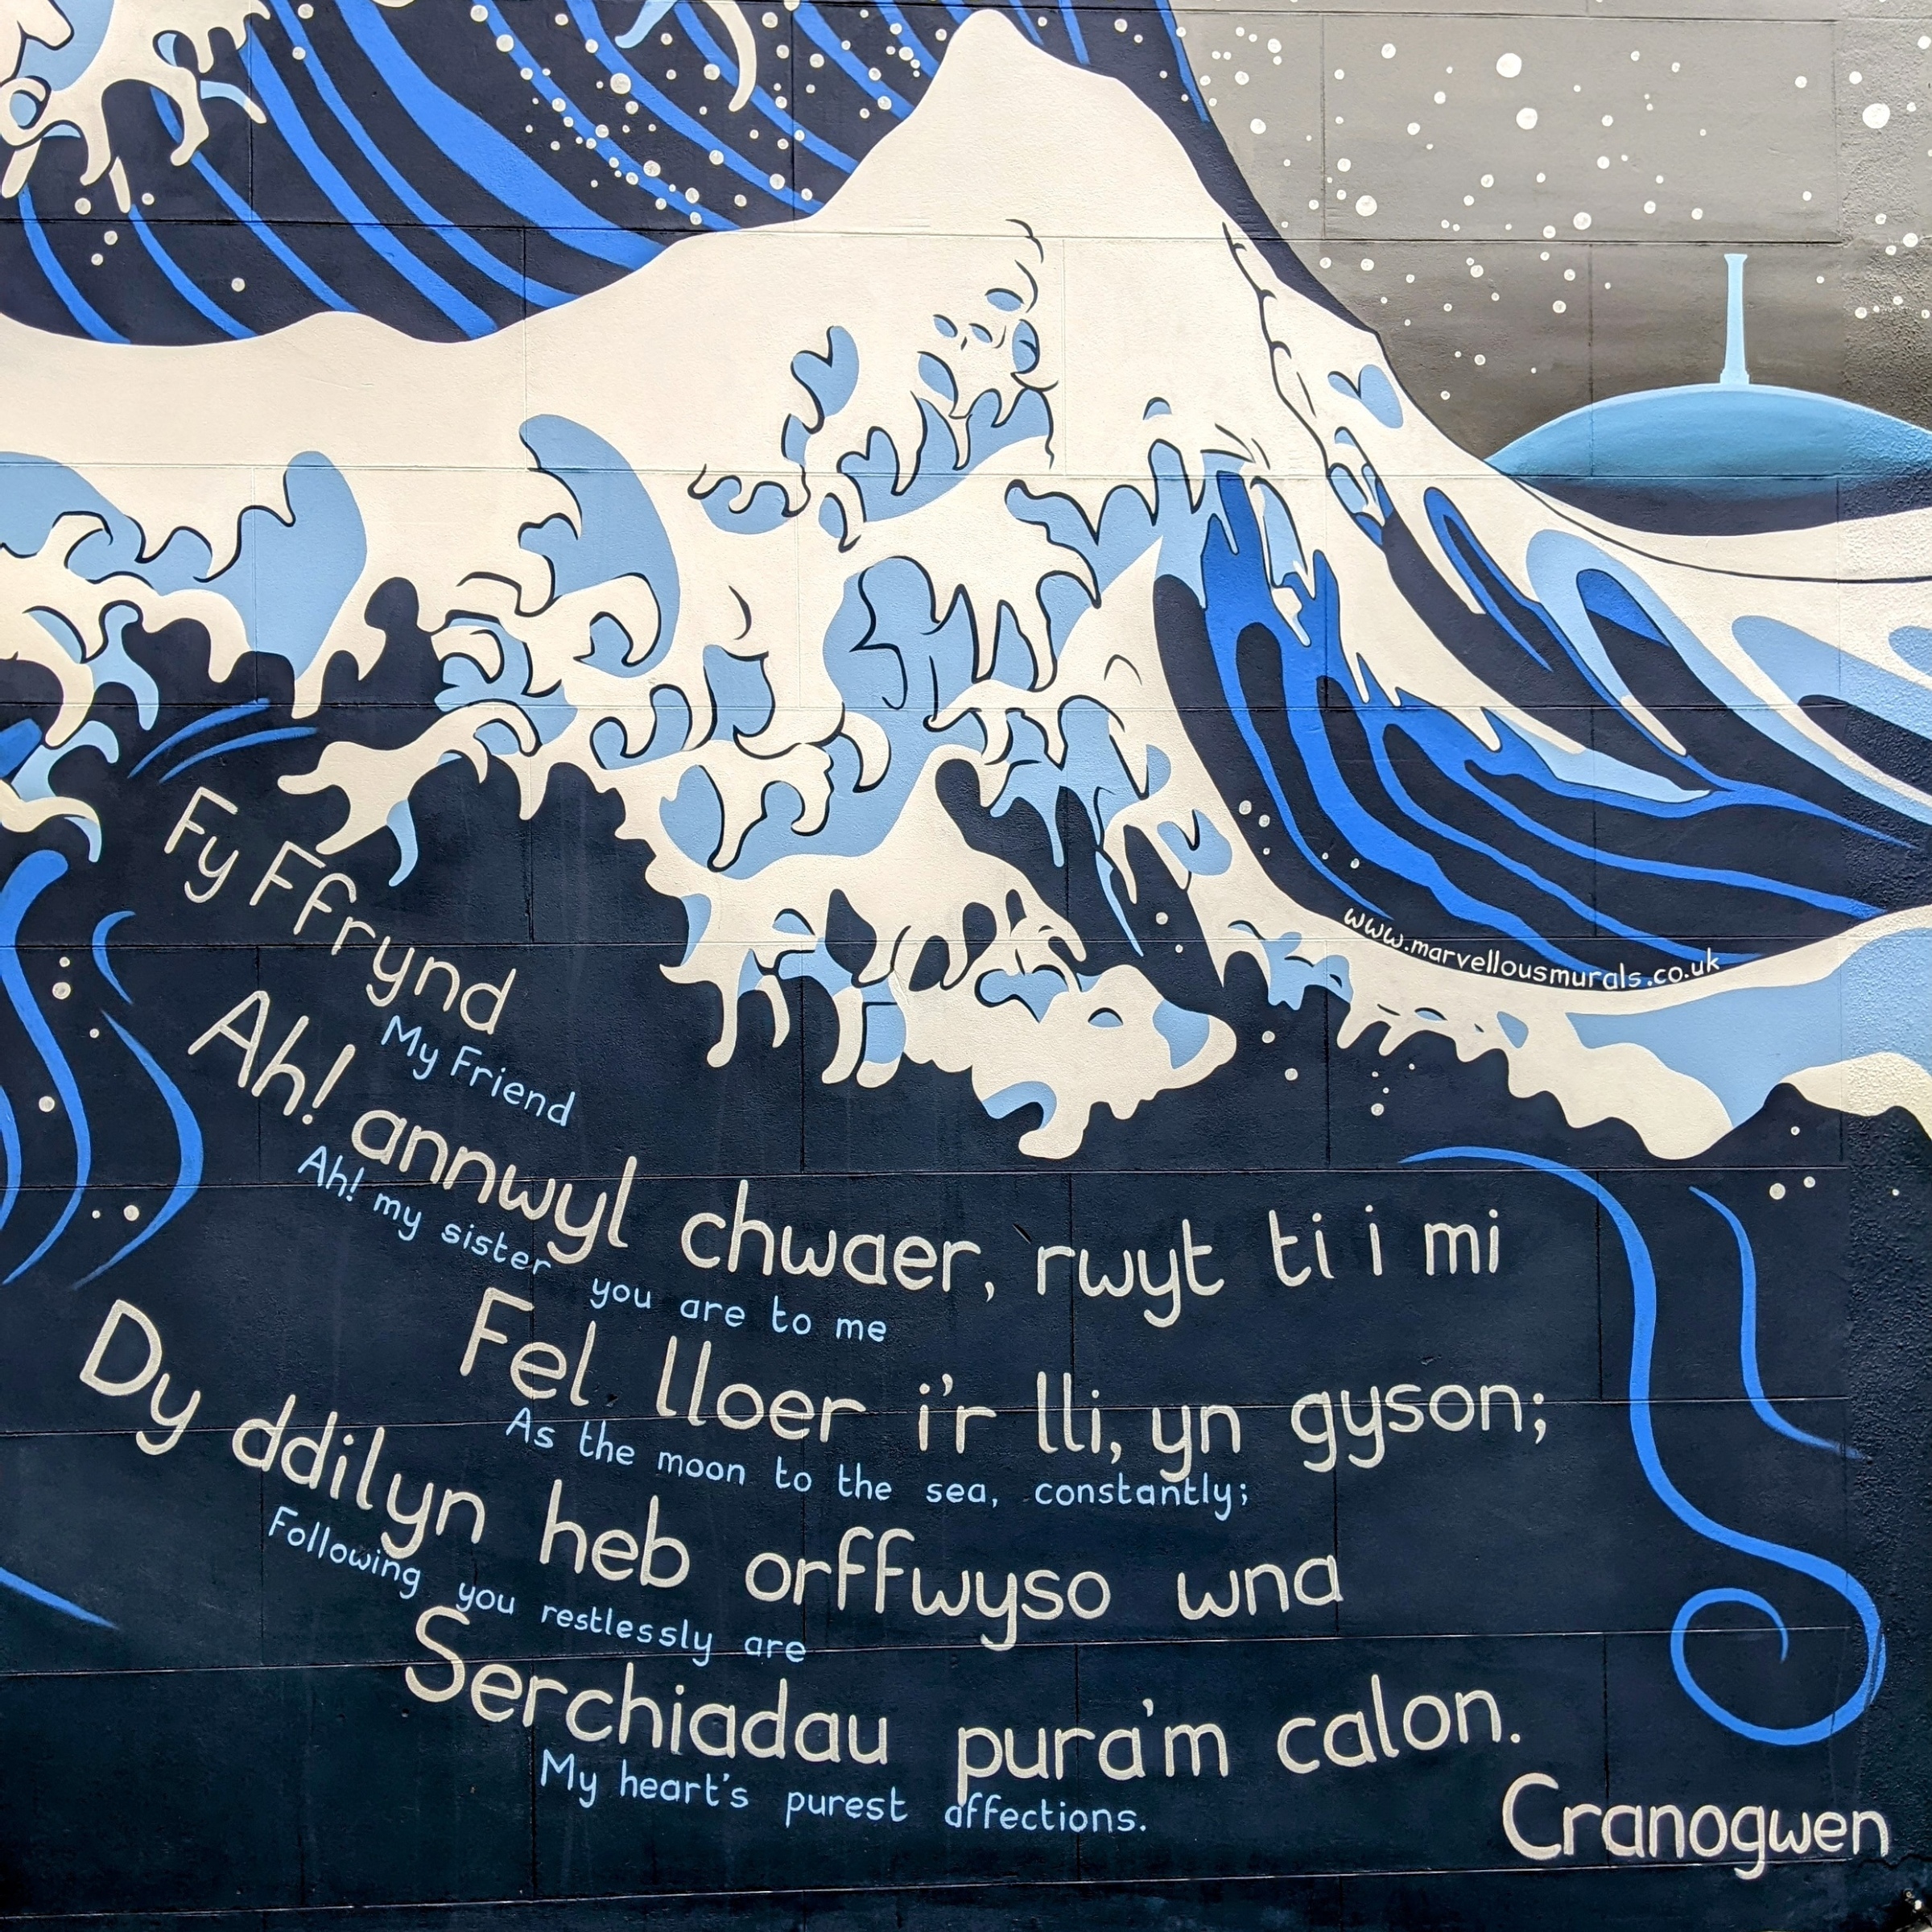 www.marvellousmurals.co.uk
Fy Ffrynd
My Friend
Ah! annwyl chwaer, rwyt ti i mi
Ah! my sister you are to me
Fel lloer i'r lli, yn gyson;
As the moon to the sea, constantly;
Dy ddilyn heb orffwyso wna
Following you restlessly are
Serchiadau pura'm calon.
My heart's purest affections.
Cranogwen